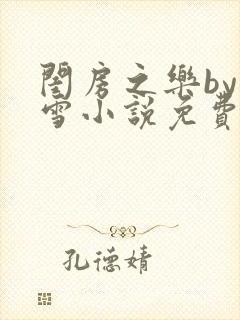 閨房之樂by
雪小說免費
孔德婧